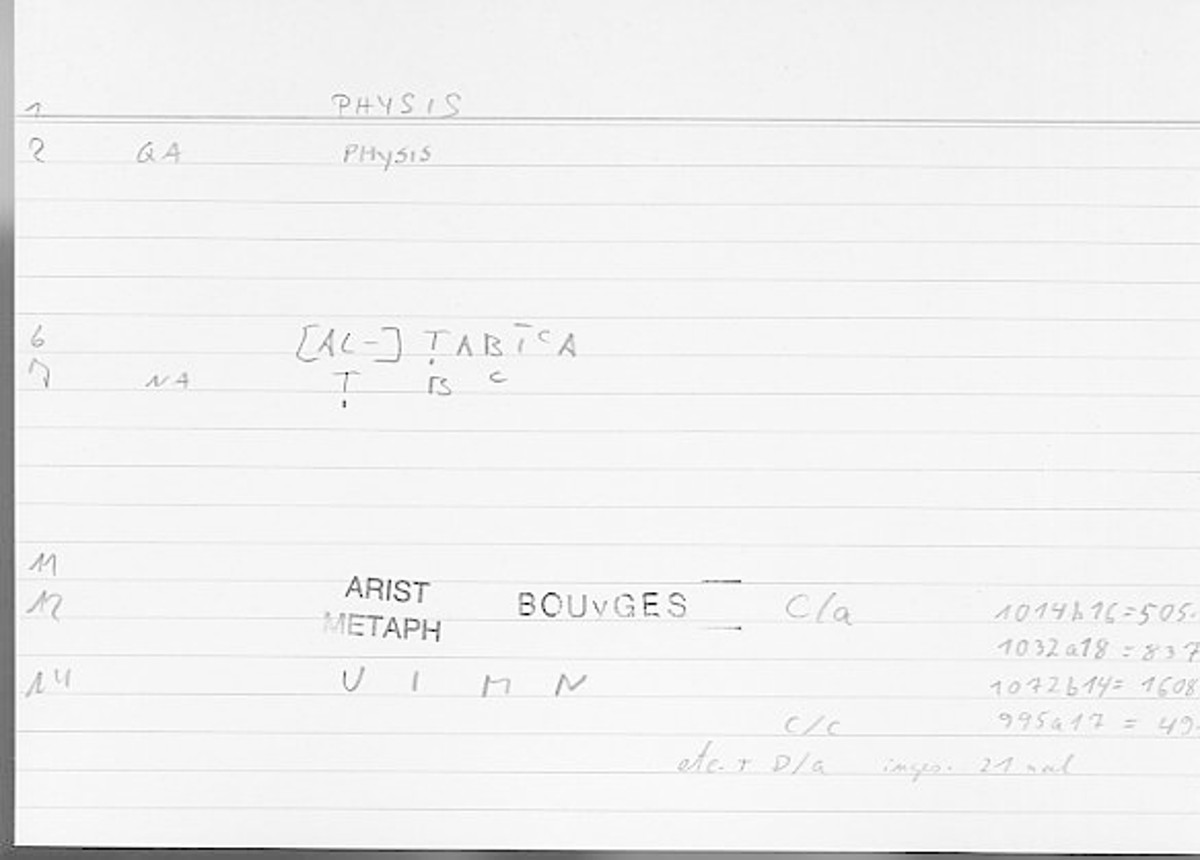 1 PHYSIS
2 QA PHYSIS
6 [AL-] ṬABĪCA
7 NA Ṭ B C
11
12 ARIST METAPH BOUvGES C/a 1014b16=505.
1032a18 = 837
14 U I M N 1072b14= 1608
C/c 995a17 = 49.
etc. + D/a insges. 21 mal